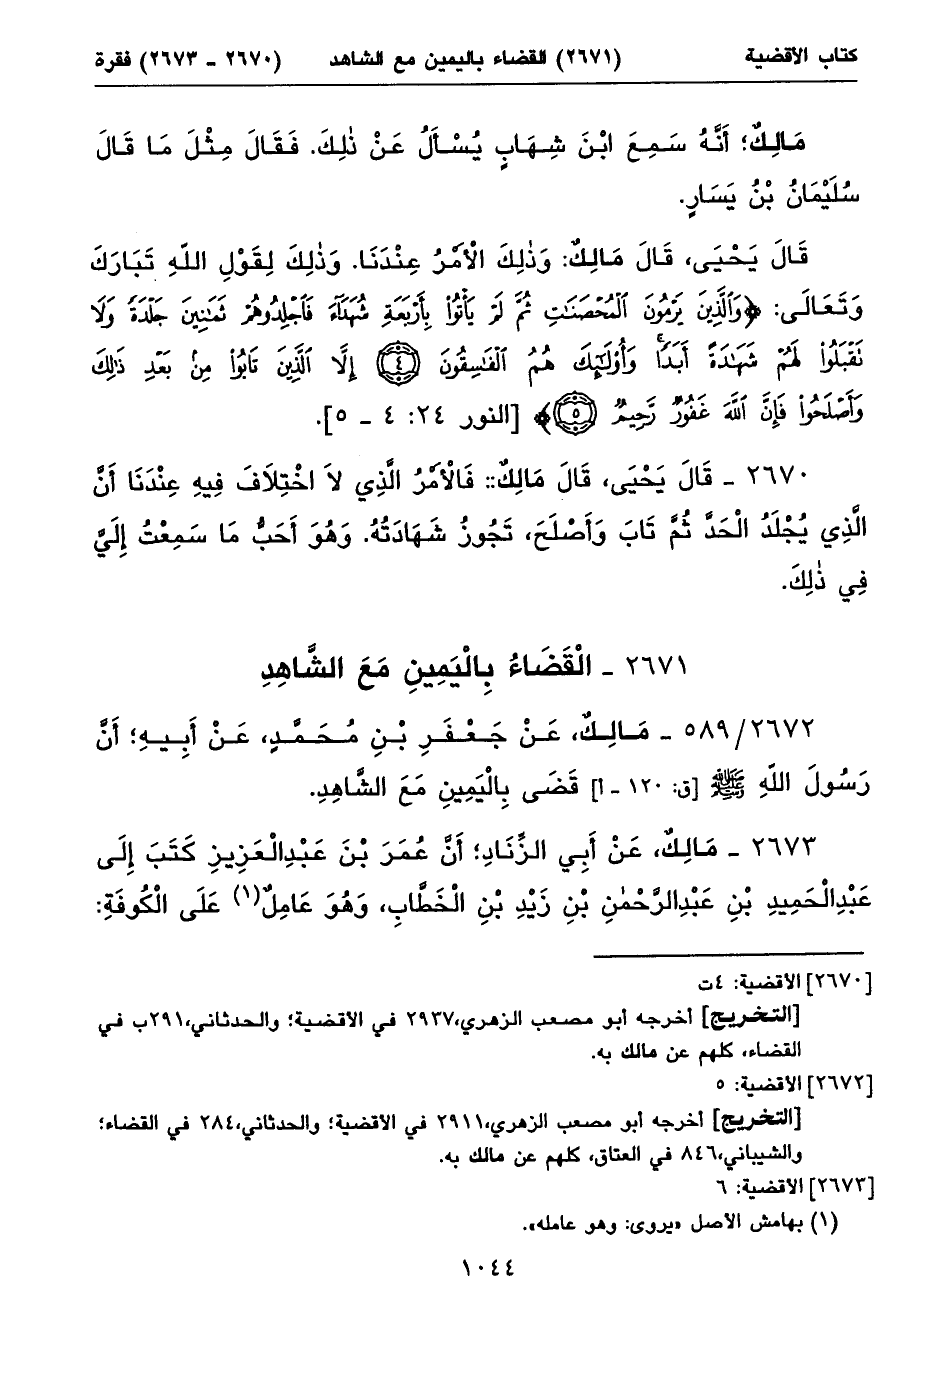 كتاب الأقضية (٢٦٧١) القضاء باليمين مع الشاهد (٢٦٧٠ ـ ٢٦٧٣) فقرة
مَالِكٌ؛ أَنَّهُ سَمِعَ ابْنَ شِهَابٍ يُسْأَلُ عَنْ ذٰلِكَ. فَقَالَ مِثْلَ مَا قَالَ
سُلَيْمَانُ بْنُ يَسَارٍ.
قَالَ يَحْيَى، قَالَ مَالِكٌ: وَذٰلِكَ الْأَمْرُ عِنْدَنَا. وَذٰلِكَ لِقَوْلِ اللهِ تَبَارَكَ
وَتَعَالَى: ﴿وَٱلَّذِينَ يَرْمُونَ ٱلْمُحْصَنَٰتِ ثُمَّ لَمْ يَأْتُوا۟ بِأَرْبَعَةِ شُهَدَآءَ فَٱجْلِدُوهُمْ ثَمَٰنِينَ جَلْدَةً وَلَا
تَقْبَلُوا۟ لَهُمْ شَهَٰدَةً أَبَدًا ۚ وَأُو۟لَٰٓئِكَ هُمُ ٱلْفَٰسِقُونَ ۝٤ إِلَّا ٱلَّذِينَ تَابُوا۟ مِنۢ بَعْدِ ذَٰلِكَ
وَأَصْلَحُوا۟ فَإِنَّ ٱللَّهَ غَفُورٌ رَّحِيمٌ ۝٥﴾ [النور ٢٤: ٤ ـ ٥].
٢٦٧٠ ـ قَالَ يَحْيَى، قَالَ مَالِكٌ:: فَالْأَمْرُ الَّذِي لاَ اخْتِلَافَ فِيهِ عِنْدَنَا أَنَّ
الَّذِي يُجْلَدُ الْحَدَّ ثُمَّ تَابَ وَأَصْلَحَ، تَجُوزُ شَهَادَتُهُ. وَهُوَ أَحَبُّ مَا سَمِعْتُ إِلَيَّ
فِي ذٰلِكَ.
٢٦٧١ ـ الْقَضَاءُ بِالْيَمِينِ مَعَ الشَّاهِدِ
٥٨٩/٢٦٧٢ ـ مَالِكٌ، عَنْ جَعْفَرِ بْنِ مُحَمَّدٍ، عَنْ أَبِيهِ؛ أَنَّ
رَسُولَ اللهِ ﷺ [ق: ١٢٠ ـ أ] قَضَى بِالْيَمِينِ مَعَ الشَّاهِدِ.
٢٦٧٣ ـ مَالِكٌ، عَنْ أَبِي الزِّنَادِ؛ أَنَّ عُمَرَ بْنَ عَبْدِالْعَزِيزِ كَتَبَ إِلَى
عَبْدِالْحَمِيدِ بْنِ عَبْدِالرَّحْمٰنِ بْنِ زَيْدِ بْنِ الْخَطَّابِ، وَهُوَ عَامِلٌ(١) عَلَى الْكُوفَةِ:
[٢٦٧٠] الأقضية: ٤ت
[التخريج] أخرجه أبو مصعب الزهري،٢٩٣٧ في الأقضية؛ والحدثاني،٢٩١ب في
القضاء، كلهم عن مالك به.
[٢٦٧٢] الأقضية: ٥
[التخريج] أخرجه أبو مصعب الزهري،٢٩١١ في الأقضية؛ والحدثاني،٢٨٤ في القضاء؛
والشيباني،٨٤٦ في العتاق، كلهم عن مالك به.
[٢٦٧٣] الأقضية: ٦
(١) بهامش الأصل «يروى: وهو عامله».
١٠٤٤